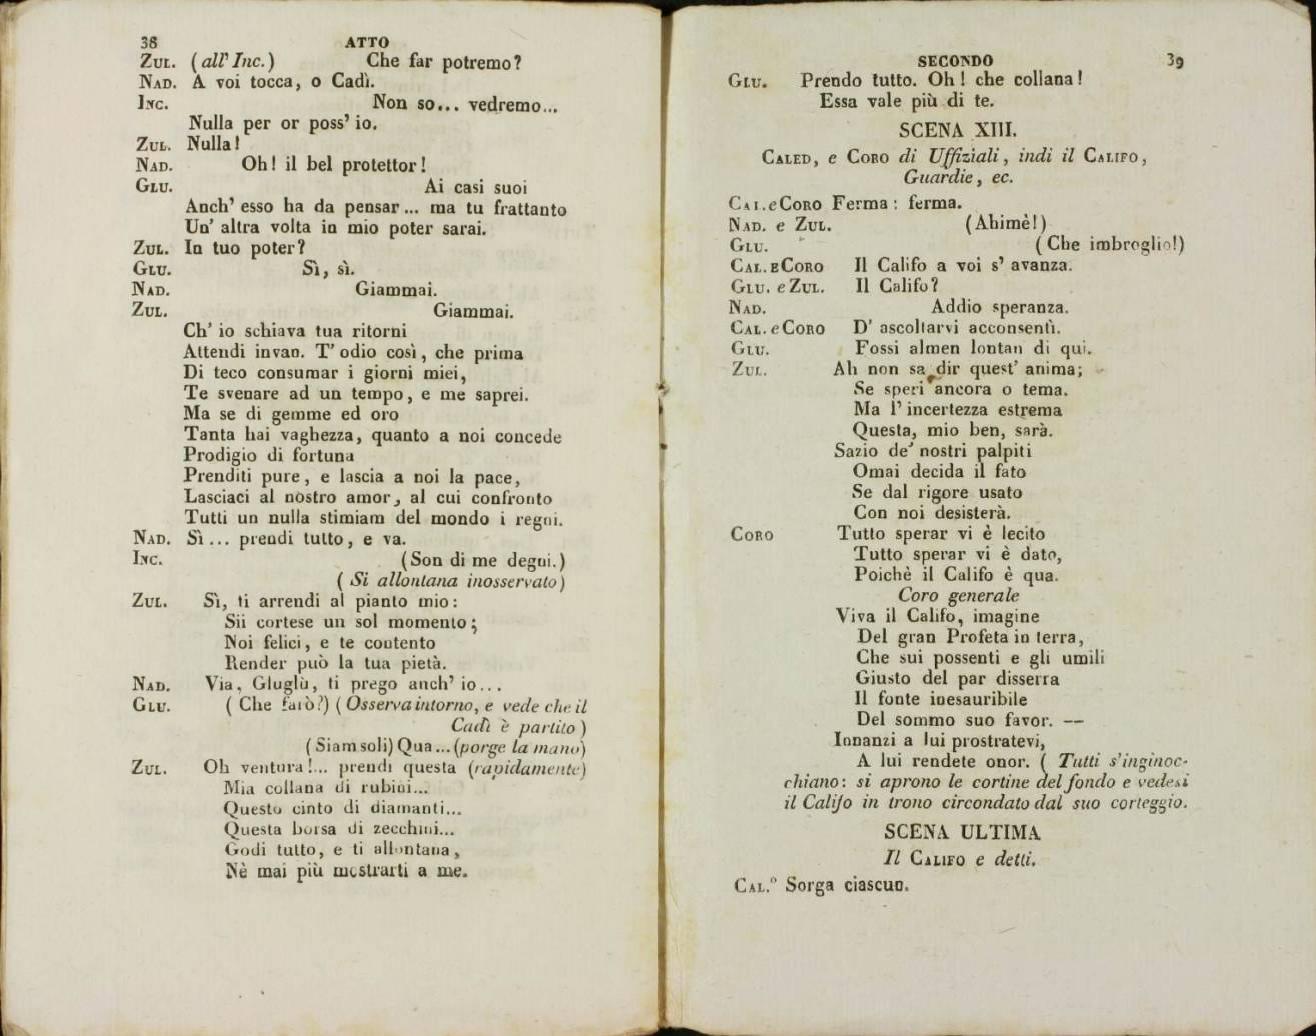 38 ATTO
ZUL. (all' Inc.) Che far potremo?
NAD. A voi tocca, o Cadì.
INC. Non so... vedremo...
Nulla per or poss' io.
ZUL. Nulla!
NAD. Oh! il bel protettor!
GLU. Ai casi suoi
Anch' esso ha da pensar... ma tu frattanto
Un' altra volta in mio poter sarai.
ZUL. In tuo poter?
GLU. Sì, sì.
NAD. Giammai.
ZUL. Giammai.
Ch' io schiava tua ritorni
Attendi invan. T' odio così, che prima
Di teco consumar i giorni miei,
Te svenare ad un tempo, e me saprei.
Ma se di gemme ed oro
Tanta hai vaghezza, quanto a noi concede
Prodigio di fortuna
Prenditi pure, e lascia a noi la pace,
Lasciaci al nostro amor, al cui confronto
Tutti un nulla stimiam del mondo i regni.
NAD. Sì... prendi tutto, e va.
INC. (Son di me degni.)
(Si allontana inosservato)
ZUL. Sì, ti arrendi al pianto mio:
Sii cortese un sol momento;
Noi felici, e te contento
Render può la tua pietà.
NAD. Via, Gluglù, ti prego anch' io...
GLU. (Che farò?) (Osserva intorno, e vede che il
Cadì è partito)
(Siam soli) Qua... (porge la mano)
ZUL. Oh ventura!... prendi questa (rapidamente)
Mia collana di rubini...
Questo cinto di diamanti...
Questa borsa di zecchini...
Godi tutto, e ti allontana,
Nè mai più mostrarti a me.
SECONDO 39
GLU. Prendo tutto. Oh! che collana!
Essa vale più di te.
SCENA XIII.
CALED, e CORO di Uffiziali, indi il CALIFO,
Guardie, ec.
CAL. e CORO Ferma: ferma.
NAD. e ZUL. (Ahimè!)
GLU. (Che imbroglio!)
CAL. E CORO Il Califo a voi s' avanza.
GLU. e ZUL. Il Califo?
NAD. Addio speranza.
CAL. e CORO D' ascoltarvi acconsentì.
GLU. Fossi almen lontan di qui.
ZUL. Ah non sa dir quest' anima;
Se speri ancora o tema.
Ma l' incertezza estrema
Questa, mio ben, sarà.
Sazio de' nostri palpiti
Omai decida il fato
Se dal rigore usato
Con noi desisterà.
CORO Tutto sperar vi è lecito
Tutto sperar vi è dato,
Poichè il Califo è qua.
Coro generale
Viva il Califo, imagine
Del gran Profeta in terra,
Che sui possenti e gli umili
Giusto del par disserra
Il fonte inesauribile
Del sommo suo favor. —
Innanzi a lui prostratevi,
A lui rendete onor. (Tutti s'inginoc-
chiano: si aprono le cortine del fondo e vedesi
il Califo in trono circondato dal suo corteggio.
SCENA ULTIMA
Il CALIFO e detti.
CAL.° Sorga ciascun.